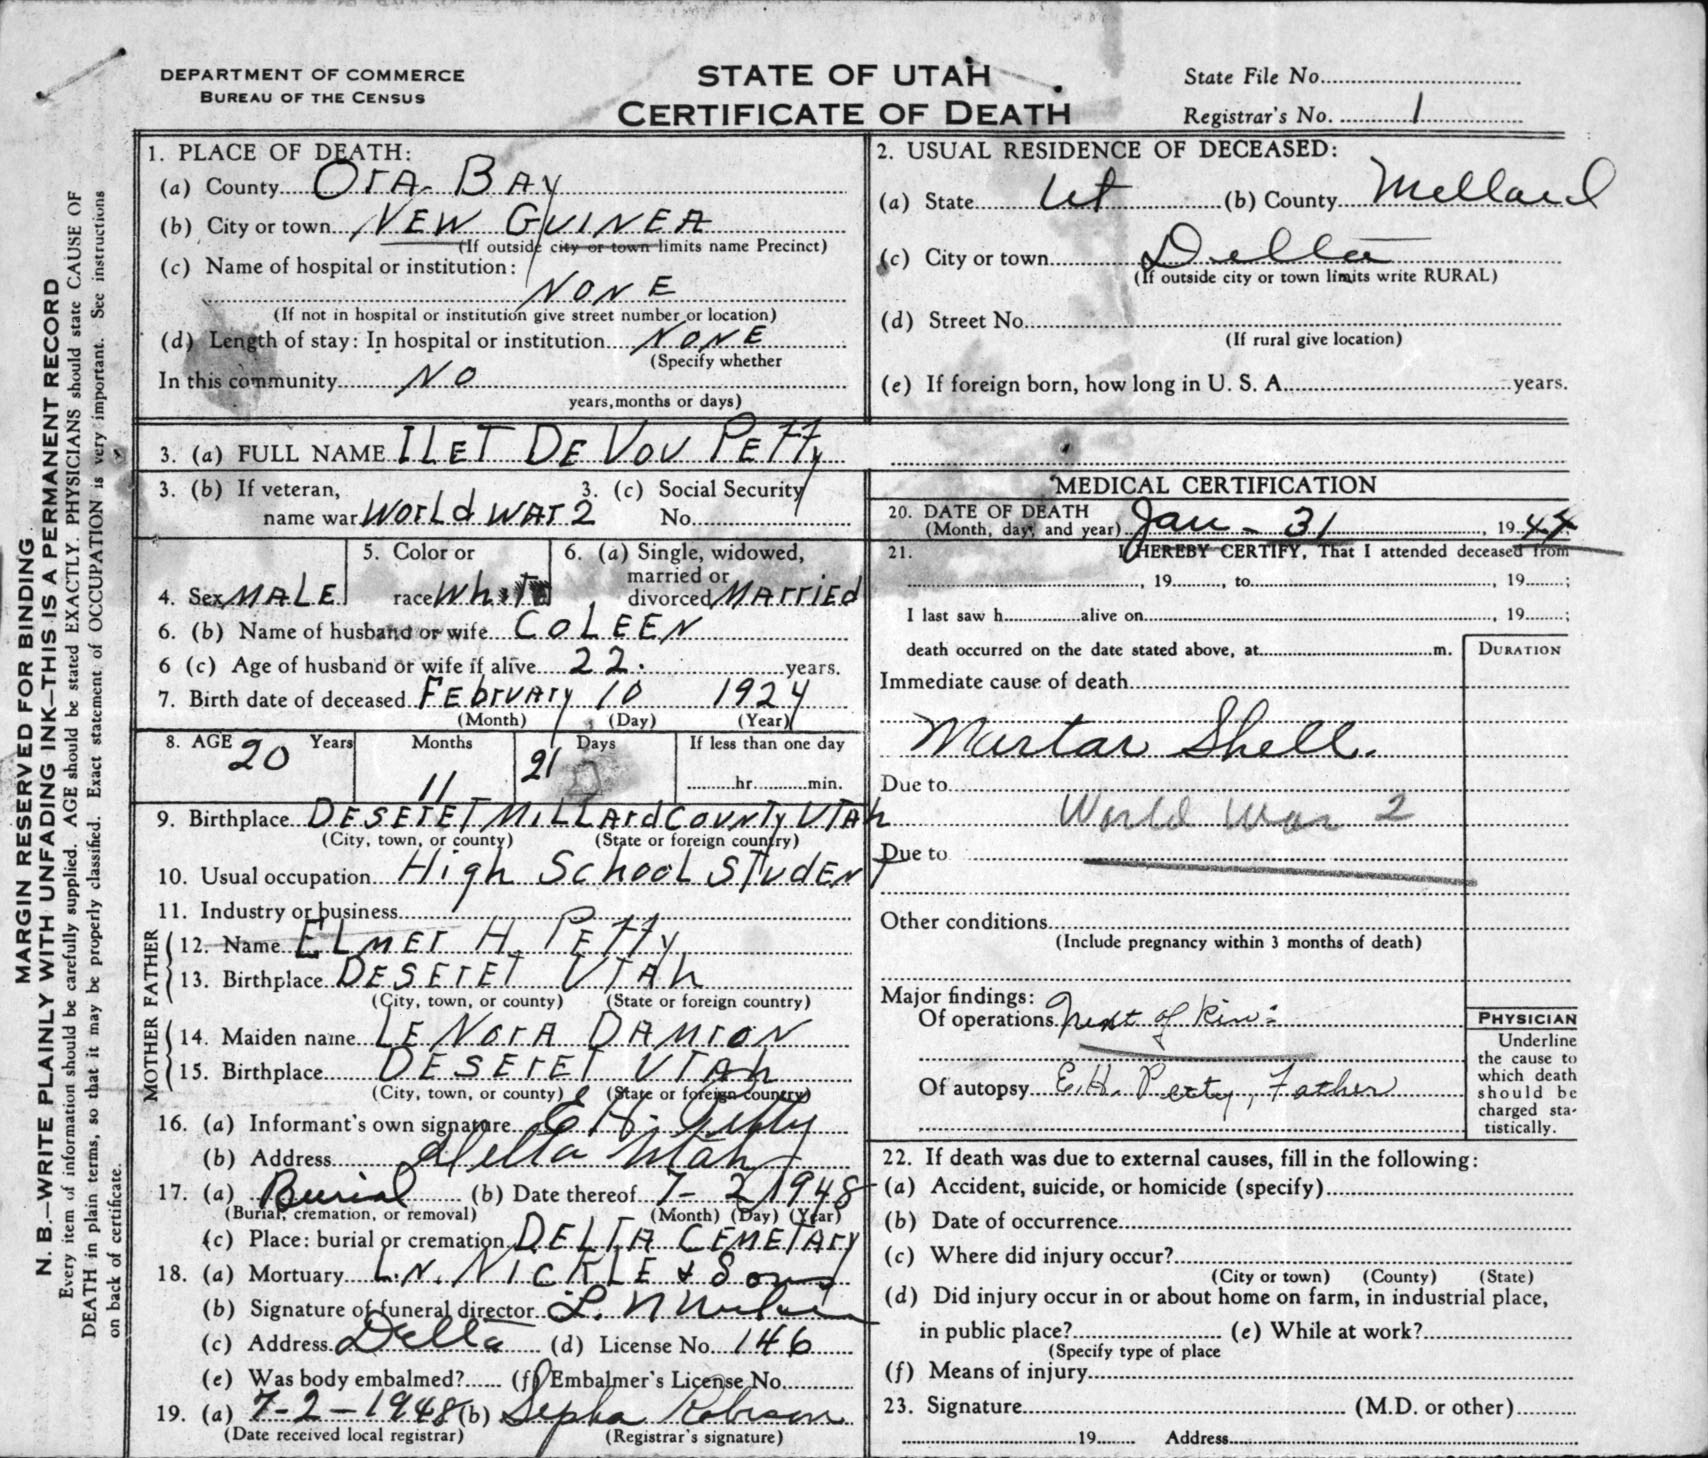 DEPARTMENT OF COMMERCE
BUREAU OF THE CENSUS
STATE OF UTAH
CERTIFICATE OF DEATH
State File No.
Registrar's No. 1
MARGIN RESERVED FOR BINDING
N. B.—WRITE PLAINLY WITH UNFADING INK—THIS IS A PERMANENT RECORD
Every item of information should be carefully supplied. AGE should be stated EXACTLY. PHYSICIANS should state CAUSE OF
DEATH in plain terms, so that it may be properly classified. Exact statement of OCCUPATION is very important. See instructions
on back of certificate.
1. PLACE OF DEATH:
(a) County Ora Bay
(b) City or town NEW GUINEA
(If outside city or town limits name Precinct)
(c) Name of hospital or institution:
NONE
(If not in hospital or institution give street number or location)
(d) Length of stay: In hospital or institution NONE
(Specify whether
In this community NO
years, months or days)
2. USUAL RESIDENCE OF DECEASED:
(a) State Ut (b) County Mellard
(c) City or town Delta
(If outside city or town limits write RURAL)
(d) Street No.
(If rural give location)
(e) If foreign born, how long in U. S. A. years.
3. (a) FULL NAME ILET DE VOU PETTy
3. (b) If veteran,
name war World War 2
3. (c) Social Security
No.
4. Sex MALE
5. Color or
race White
6. (a) Single, widowed,
married or
divorced MArriEd
6. (b) Name of husband or wife COLEEN
6 (c) Age of husband or wife if alive 22. years.
7. Birth date of deceased February 10 1924
(Month) (Day) (Year)
8. AGE Years Months Days If less than one day
20 11 21 hr. min.
9. Birthplace DESErET MILLArd COUNTy UTAh
(City, town, or county) (State or foreign country)
10. Usual occupation High School STudENT
11. Industry or business
FATHER
12. Name ELMEr H. PETTy
13. Birthplace DESErET UTAh
(City, town, or county) (State or foreign country)
MOTHER
14. Maiden name LENOrA DAMrON
15. Birthplace DESErET UTAh
(City, town, or county) (State or foreign country)
16. (a) Informant's own signature E H. Petty
(b) Address Delta Utah
17. (a) Burial (b) Date thereof 7-2 1948
(Burial, cremation, or removal) (Month) (Day) (Year)
(c) Place: burial or cremation DELTA CEMETAry
18. (a) Mortuary L.N. NICKLE & Sons
(b) Signature of funeral director L. N
(c) Address Delta (d) License No. 146
(e) Was body embalmed? (f) Embalmer's License No.
19. (a) 7-2-1948 (b) Sepha Robison
(Date received local registrar) (Registrar's signature)
MEDICAL CERTIFICATION
20. DATE OF DEATH
(Month, day, and year) Jan - 31, 1944
21. I HEREBY CERTIFY, That I attended deceased from
, 19 , to , 19 ;
I last saw h alive on , 19 ;
death occurred on the date stated above, at m.
DURATION
Immediate cause of death
Martar Shell.
Due to
World War 2
Due to
Other conditions
(Include pregnancy within 3 months of death)
Major findings:
Of operations Next of Kin:
Of autopsy E.H. Petty, Father
PHYSICIAN
Underline
the cause to
which death
should be
charged sta-
tistically.
22. If death was due to external causes, fill in the following:
(a) Accident, suicide, or homicide (specify)
(b) Date of occurrence
(c) Where did injury occur?
(City or town) (County) (State)
(d) Did injury occur in or about home on farm, in industrial place,
in public place? (e) While at work?
(Specify type of place
(f) Means of injury
23. Signature (M.D. or other)
19 Address